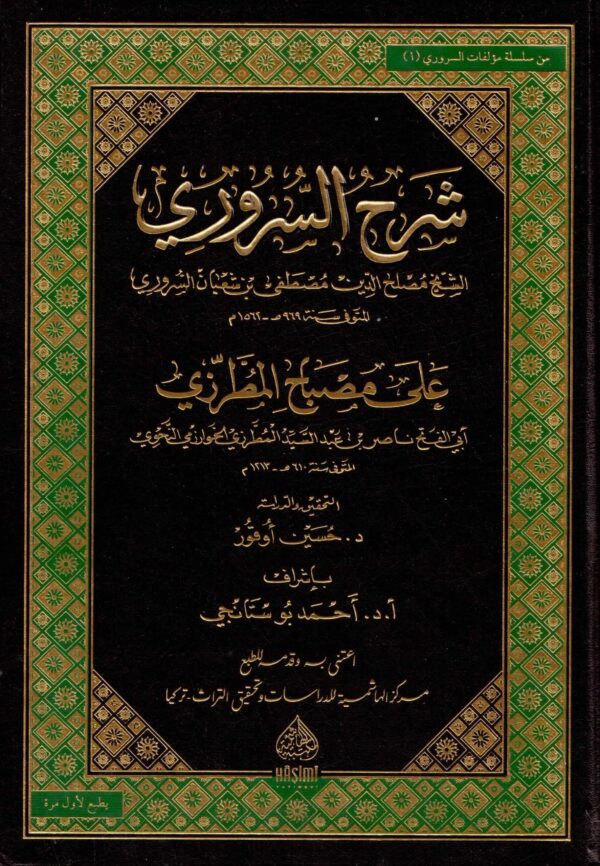 من سلسلة مؤلفات السروري (١)
شَرْحُ السُّرُورِي
الشيخ مصلح الدين مصطفى بن شعبان السروري
المتوفى سنة ٩٦٩هـ - ١٥٦٢م
عَلَى مِصْبَاحِ المُطَرِّزِي
أبي الفتح ناصر بن عبد السيد المطرزي الخوارزمي النحوي
المتوفى سنة ٦١٠هـ - ١٢١٣م
التحقيق والدراسة
د. حُسَين أُوقُور
بإشراف
أ.د. أحمد بوستانجي
اعتنى به وقدمه للطبع
مركز الهاشمية للدراسات وتحقيق التراث - تركيا
HÂŞİMÎ
YAYINEVİ
يطبع لأول مرة